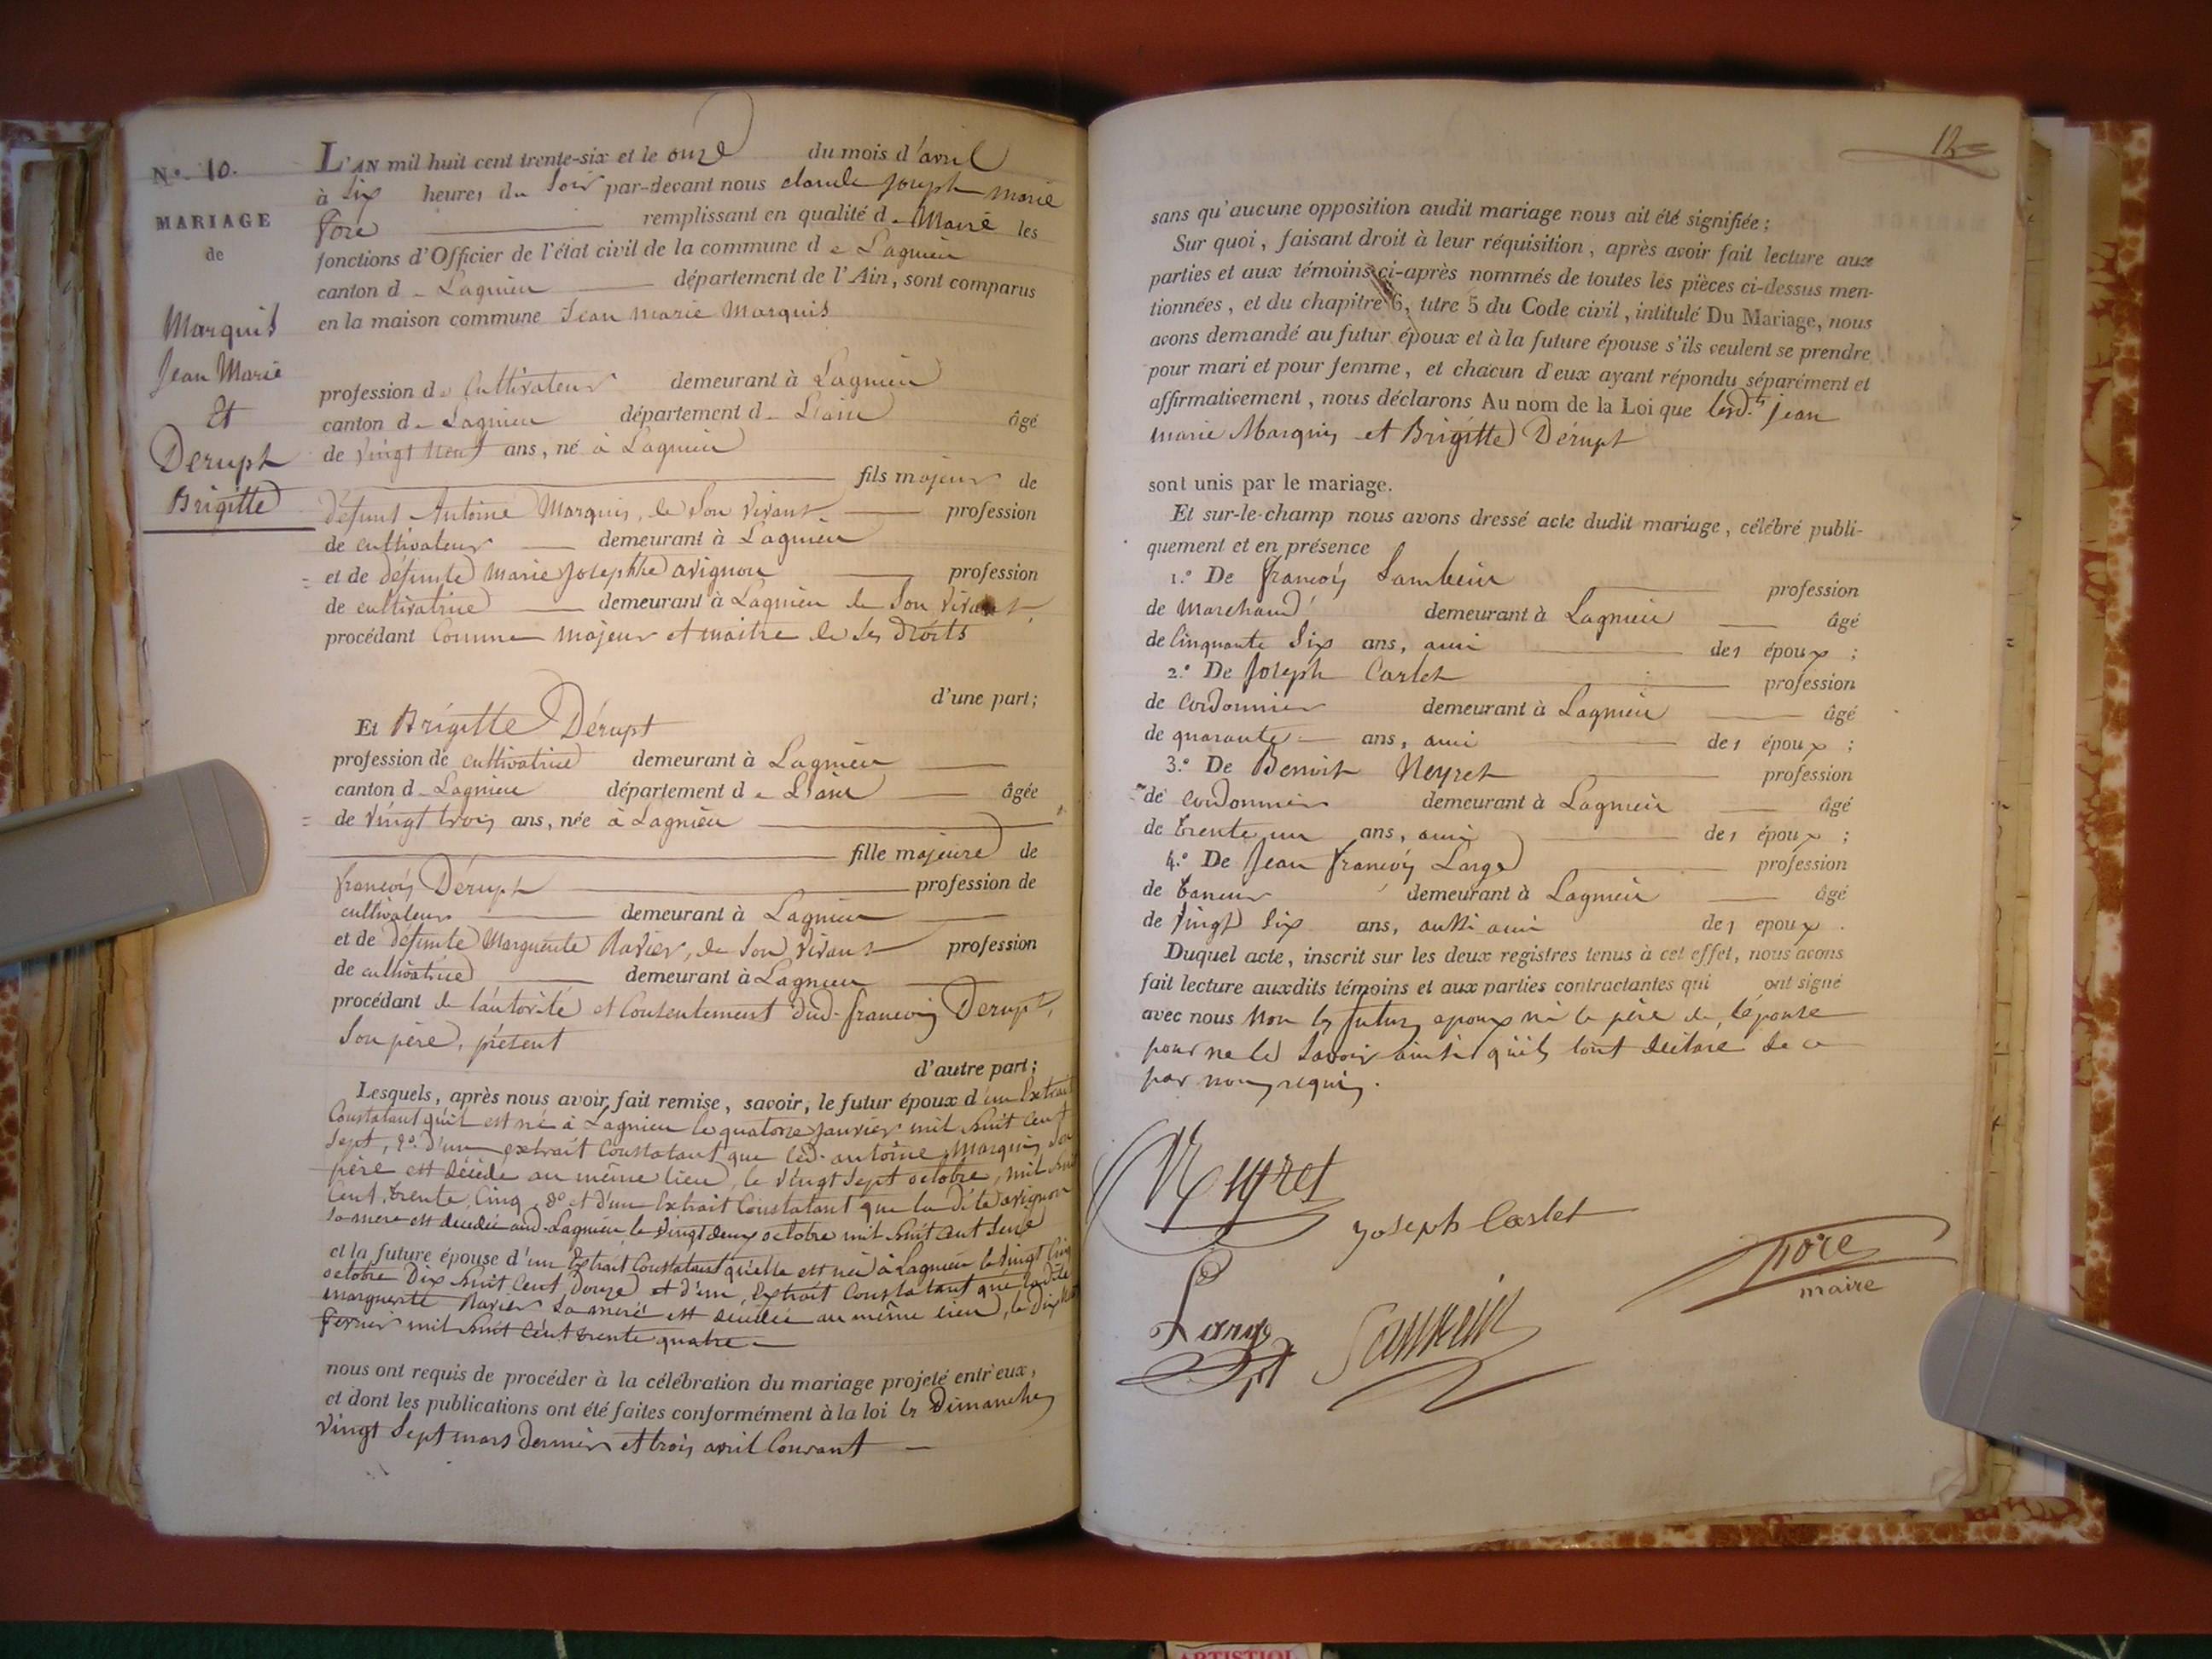 N.o 10.
MARIAGE
de
Marquis
Jean Marie
Et
Derupt
Brigitte
L'AN mil huit cent trente-six et le onze du mois d'avril
à Six heures du Soir par-devant nous claude joseph marie
fore remplissant en qualité de Maire les
fonctions d'Officier de l'état civil de la commune de Lagnieu
canton d Lagnieu département de l'Ain, sont comparus
en la maison commune Jean marie Marquis
profession de Cultivateur demeurant à Lagnieu
canton d Lagnieu département d Lain âgé
de vingt neuf ans, né à Lagnieu
fils majeur de
défunt Antoine Marquis, de Son vivant profession
de cultivateur demeurant à Lagnieu
et de défunte Marie Josephte avignon profession
de cultivatrice demeurant à Lagnieu de Son vivant
procédant Comme majeur et maitre de Ses droits
d'une part;
Et Brigitte Dérupt
profession de cultivatrice demeurant à Lagnieu
canton d Lagnieu département de Lain âgée
de vingt trois ans, née à Lagnieu
fille majeure de
françois Dérupt profession de
cultivateur demeurant à Lagnieu
et de défunte Marguerite Ravier, de Son vivant profession
de cultivatrice demeurant à Lagnieu
procédant de l'autorité et Consentement dud. françois Derupt,
Son père, présent
d'autre part;
Lesquels, après nous avoir fait remise, savoir, le futur époux d'un Extrait
Constatant qu'il est né à Lagnieu le quatorze janvier mil huit Cent
Sept, 2o. d'un extrait Constatant que led. antoine Marquis Son
père est décédé au même lieu, le vingt Sept octobre, mil huit
Cent trente Cinq, 3o et d'un Extrait Constatant que la dite avignon
Sa mere est décédée aud. Lagnieu le vingt deux octobre mil huit Cent Seize
et la future épouse d'un Extrait Constatant qu'elle est née à Lagnieu le vingt Cinq
octobre Dix huit Cent Douze et d'un Extrait Constatant que ladite
marguerite Ravier Sa mere est décédée au même lieu, le
fevrier mil huit Cent trente quatre
nous ont requis de procéder à la célébration du mariage projeté entr'eux,
et dont les publications ont été faites conformément à la loi les Dimanches
vingt Sept mars dernier et trois avril Courant
sans qu'aucune opposition audit mariage nous ait été signifiée;
Sur quoi, faisant droit à leur réquisition, après avoir fait lecture aux
parties et aux témoins ci-après nommés de toutes les pièces ci-dessus men-
tionnées, et du chapitre 6, titre 5 du Code civil, intitulé Du Mariage, nous
avons demandé au futur époux et à la future épouse s'ils veulent se prendre
pour mari et pour femme, et chacun d'eux ayant répondu séparément et
affirmativement, nous déclarons Au nom de la Loi que lesd.ts jean
marie Marquis et Brigitte Dérupt
sont unis par le mariage.
Et sur-le-champ nous avons dressé acte dudit mariage, célébré publi-
quement et en présence
1.o De françois profession
de Marchand demeurant à Lagnieu âgé
de Cinquante Six ans, ami des époux;
2.o De Joseph Carlet profession
de Cordonnier demeurant à Lagnieu âgé
de quarante ans, ami des époux;
3.o De Benoit Neyret profession
de cordonnier demeurant à Lagnieu âgé
de trente un ans, ami des époux;
4.o De Jean françois Large profession
de taneur demeurant à Lagnieu âgé
de vingt Six ans, aussi ami des epoux.
Duquel acte, inscrit sur les deux registres tenus à cet effet, nous avons
fait lecture auxdits témoins et aux parties contractantes qui ont signé
avec nous Non les futurs epoux ni le père de l'épouse
pour ne le Savoir ainsi qu'ils l'ont déclaré de ce
par nous requis.
Neyret
Joseph Carlet
fore
maire
Large